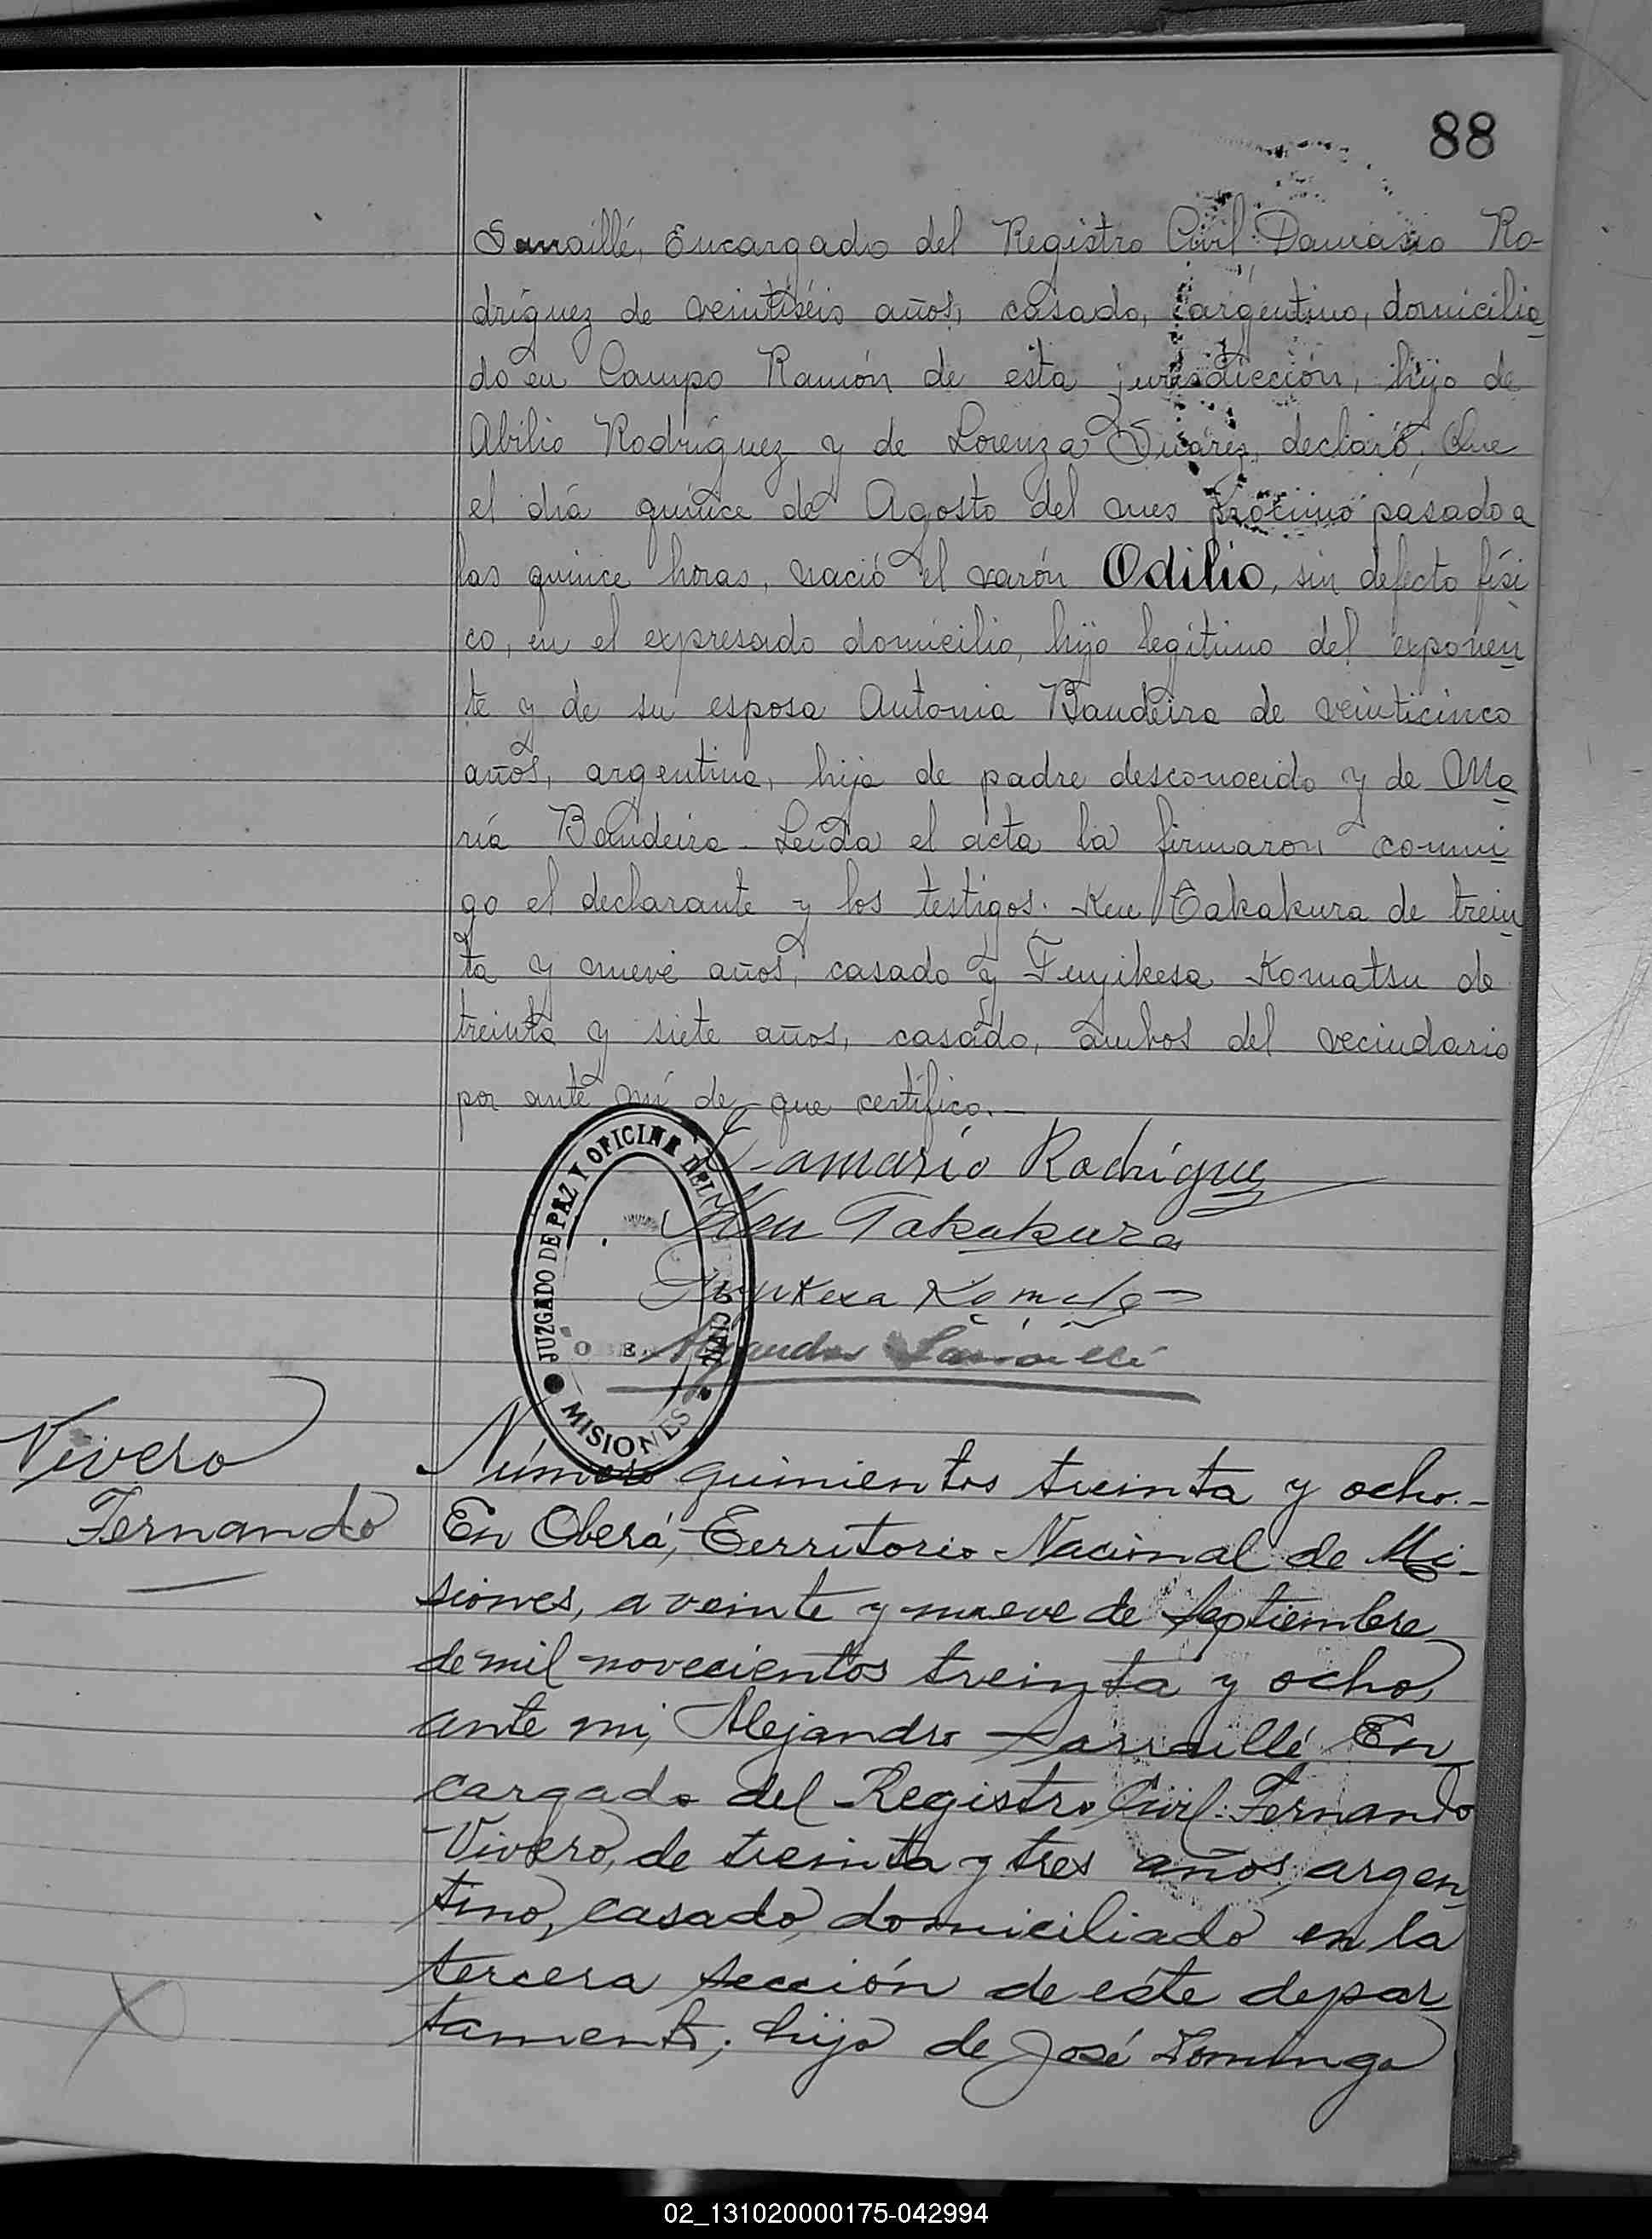 88
Sarraillé, Encargado del Registro Civil: Damasio Ro-
dríguez de veintiséis años, casado, argentino, domicilia
do en Campo Ramón de esta jurisdicción, hijo de
Abilio Rodríguez y de Lorenza Suárez, declaró; Que
el día quince de Agosto del mes próximo pasado a
las quince horas, nació el varón Odilio, sin defecto físi
co, en el expresado domicilio, hijo legítimo del exponen
te y de su esposa Antonia Bandeira de veinticinco
años, argentina, hija de padre desconocido y de Ma
ría Bandeira - Leída el acta la firmaron conmi
go el declarante y los testigos. Ken Takakura de trein
ta y nueve años, casado y Fuyikesa Komatsu de
treinta y siete años, casado, ambos del vecindario
por ante mí de que certifico.-
Damasio Rodríguez
Ken Takakura
Fuyikesa
Alejandro Sarraillé
JUZGADO DE PAZ Y OFICINA DEL CIVIL
MISIONES
Vivero
Fernando
Número quinientos treinta y ocho.-
En Oberá, Territorio Nacional de Mi-
siones, a veinte y nueve de Septiembre
de mil novecientos treinta y ocho,
ante mi, Alejandro Sarraillé En
cargado del Registro Civil: Fernando
Vivero, de treinta y tres años, argen
tino, casado, domiciliado en la
tercera sección de éste depar
tamento; hijo de José Domingo
02_131020000175-042994